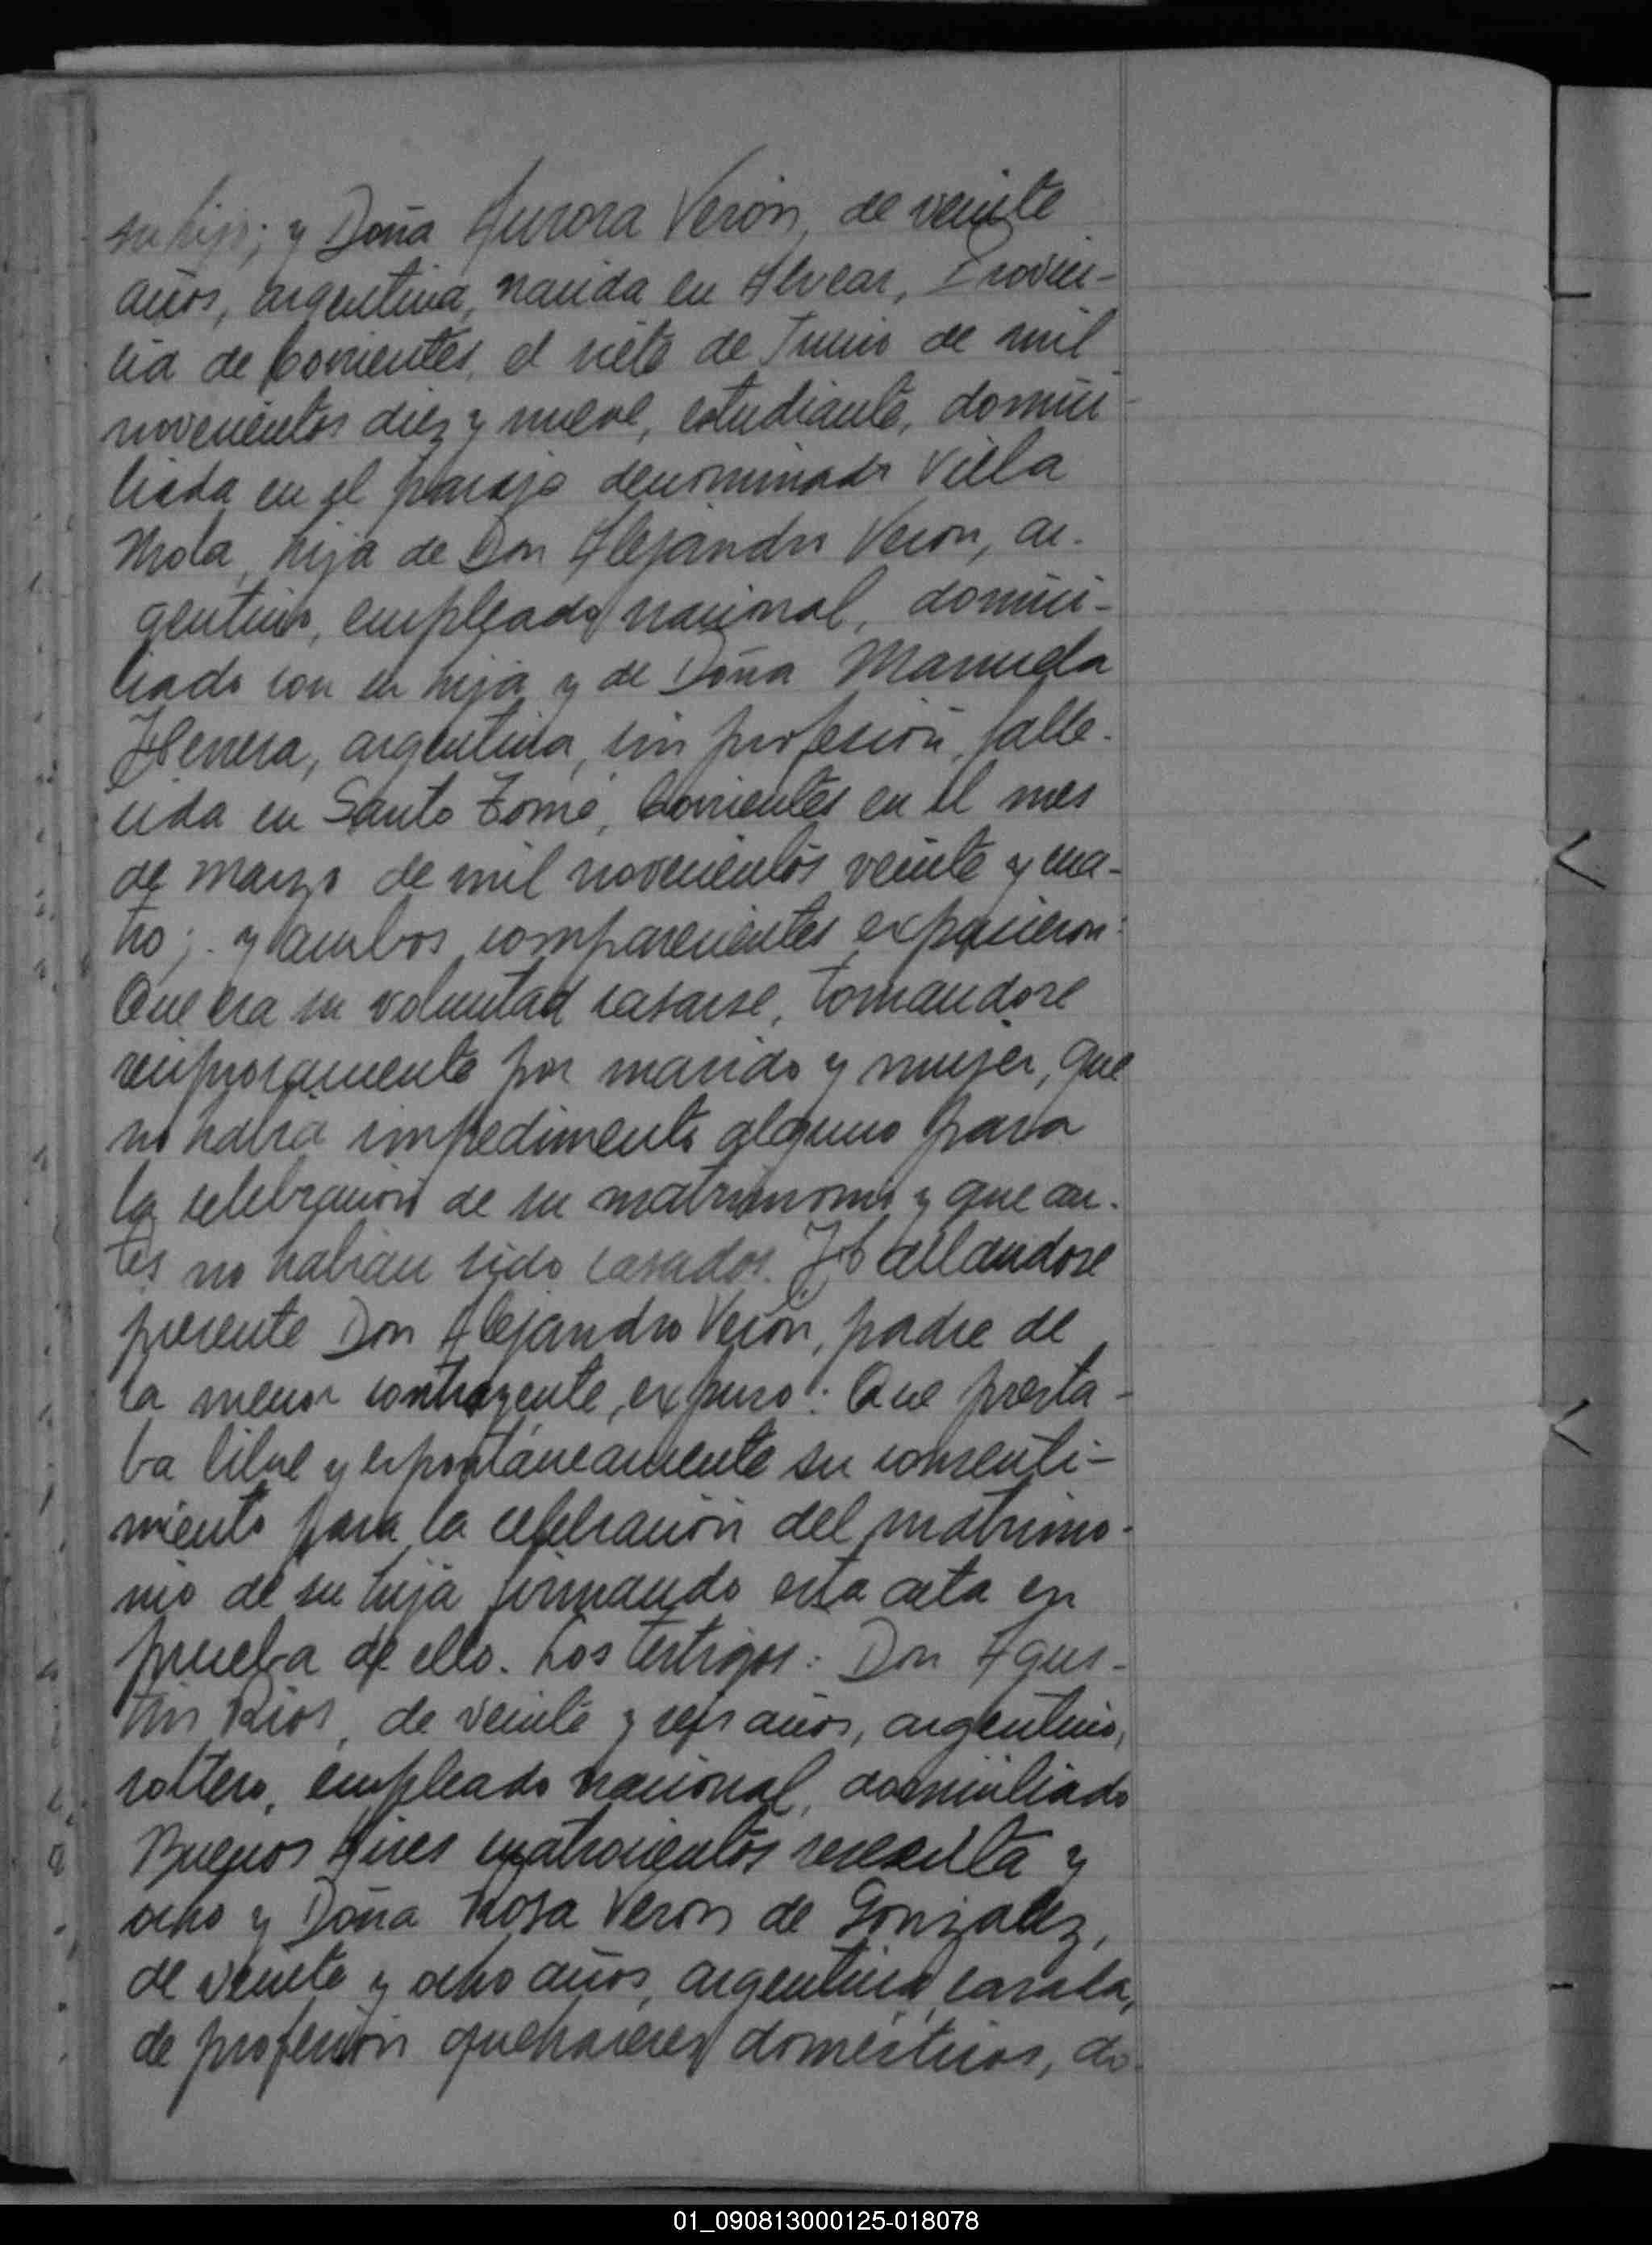 su hijo; y Doña Aurora Verón, de veinte
años, argentina, nacida en Alvear, Provin-
cia de Corrientes, el siete de Junio de mil
novecientos diez y nueve, estudiante, domici
liada en el paraje denominado Villa
Mola, hija de Don Alejandro Veron, ar-
gentino, empleado nacional, domici-
liado con su hija y de Doña Manuela
Herrera, argentina, sin profesión, falle-
cida en Santo Tomé, Corrientes en el mes
de marzo de mil novecientos veinte y cua-
tro; y ambos comparecientes expusieron:
Que era su voluntad casarse, tomandose
reciprocamente por marido y mujer, que
no habia impedimento alguno para
la celebración de su matrimonio y que an-
tes no habian sido casados. Hallandose
presente Don Alejandro Verón, padre de
la menor contrayente, expuso: Que presta-
ba libre y espontáneamente su consenti-
miento para la celebración del matrimo-
nio de su hija firmando esta acta en
prueba de ello. Los testigos: Don Agus-
tin Rios, de veinte y seis años, argentino,
soltero, empleado nacional, domiciliado
Buenos Aires cuatrocientos sesenta y
ocho y Doña Rosa Veron de Gonzalez,
de veinte y ocho años, argentina, casada,
de profesión quehaceres domésticos, do-
01_090813000125-018078